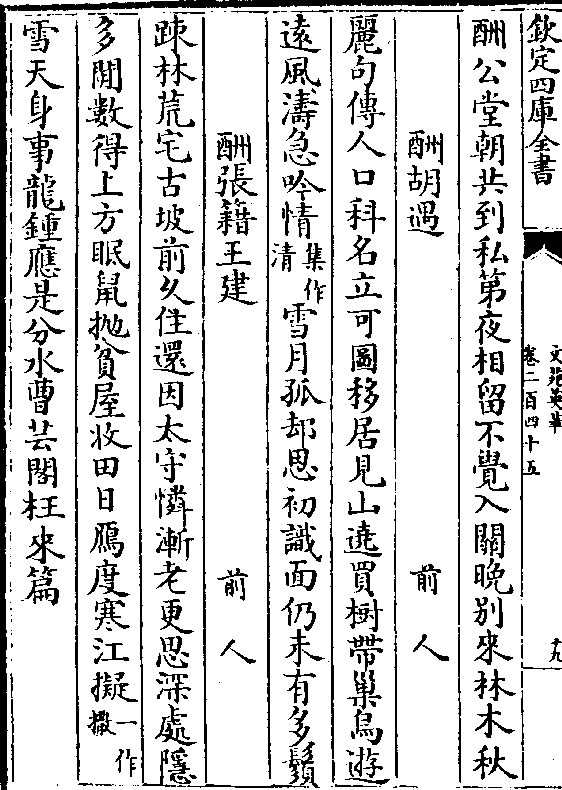 欽定四庫全書
文苑英華
卷二百四十五
十九
酬公堂朝共到私第夜相留不覺入關晚別來林木秋
酬胡遇 前人
麗句傳人口科名立可圖移居見山遶買樹帶巢烏遊
遠風濤急吟情集作清雪月孤却思初識面仍未有多鬚
酬張籍王建 前人
踈林荒宅古坡前久住還因太守憐漸老更思深處隱
多閒數得上方眠鼠抛貧屋收田日鴈度寒江擬一作撒
雪天身事龍鍾應是分水曹芸閣枉來篇